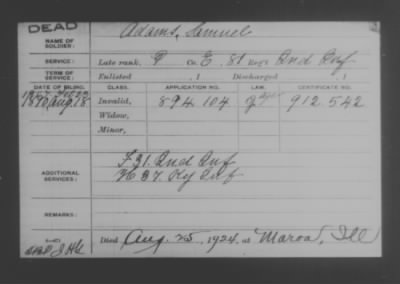 DEAD
Adams, Samuel
NAME OF SOLDIER:
SERVICE: Late rank, P Co. E, 81 Reg't Ind Inf
TERM OF SERVICE: Enlisted , 1 Discharged , 1
DATE OF FILING. CLASS. APPLICATION NO. LAW. CERTIFICATE NO.
1890, Aug 18 Invalid, 894 104 912 542
Widow,
Minor,
ADDITIONAL SERVICES:
F 31. Ind Inf
H 37. Ky Inf
REMARKS:
Died Aug. 25, 1924, at Maroa, Ill